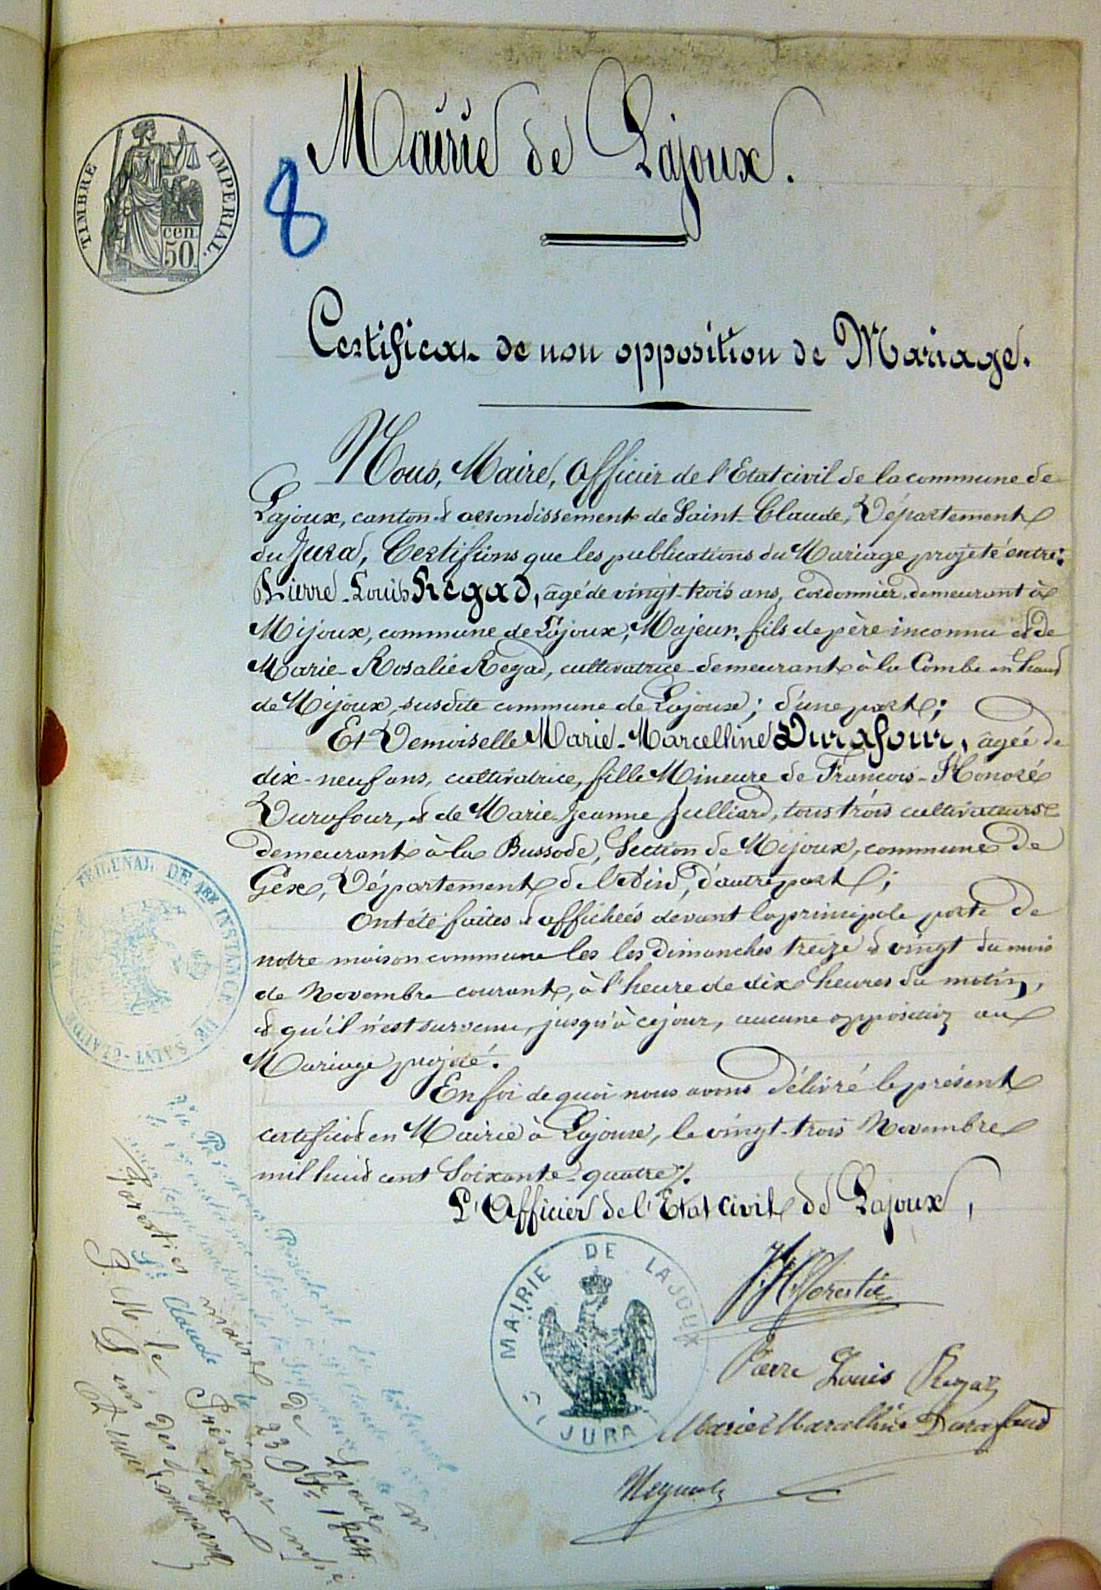 TIMBRE IMPERIAL.
cen.
50.
8
Mairie de Lajoux.
Certificat de non opposition de Mariage.
Nous, Maire, Officier de l'Etat civil de la commune de
Lajoux, canton & arrondissement de Saint-Claude, Département
du Jura, Certifions que les publications du Mariage projeté entre:
Pierre-Louis Regad, agé de vingt-trois ans, cordonnier demeurant à
Mijoux, commune de Lajoux, Majeur, fils de père inconnu et de
Marie-Rosalie Regad, cultivatrice demeurant à la Combe en haut
de Mijoux, susdite commune de Lajoux; d'une part;
Et Demoiselle Marie-Marcelline Durafour, âgée de
dix-neuf ans, cultivatrice, fille Mineure de François-Honoré
Durafour, & de Marie-Jeanne Julliard, tous trois cultivateurs
demeurant à la Bussode, Section de Mijoux, commune de
Gex, Département de l'Ain, d'autre part;
Ont été faites & affichées devant la principale porte de
notre maison commune les les Dimanches treize & vingt du mois
de Novembre courant, à l'heure de dix heures du matin,
& qu'il n'est survenu, jusqu'à ce jour, aucune opposition au
Mariage projeté.
En foi de quoi nous avons délivré le présent
certificat en Mairie à Lajoux, le vingt-trois Novembre
mil huit cent soixante-quatre.
L'Officier de l'Etat civil de Lajoux,
TRIBUNAL DE 1ERE INSTANCE DE SAINT-CLAUDE
MAIRIE DE LAJOUX
JURA
Forestier
Pierre Louis Regad
Marie Marcelline Durafour
Vu Par nous, Président du tribunal
St Claude
Forestier maire de Lajoux
le 23 9bre 1864